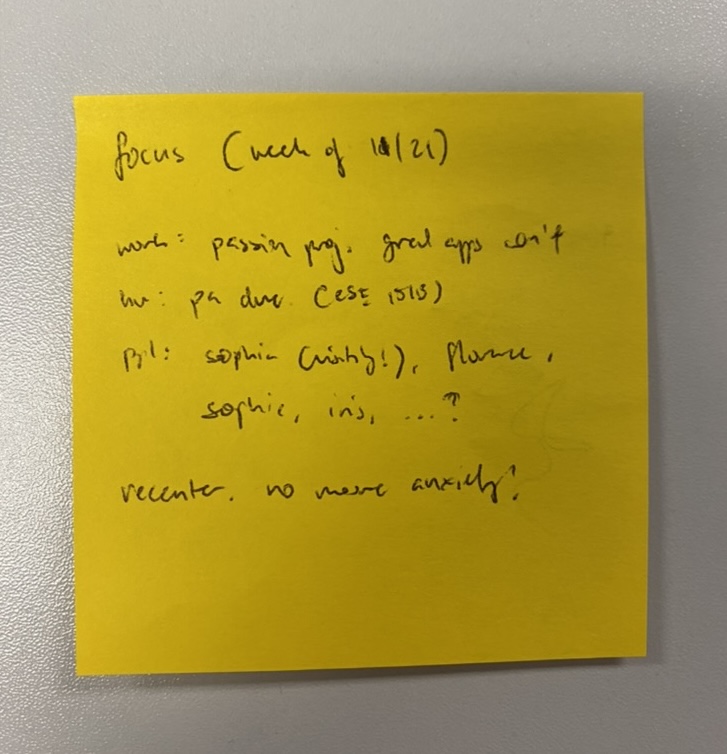 focus (week of 10/21)
work: passion proj. grad apps con't
hw: pa due (ESE 1515)
sophia (visiting!),
sophie, iris, ...?
recenter. no more anxiety!